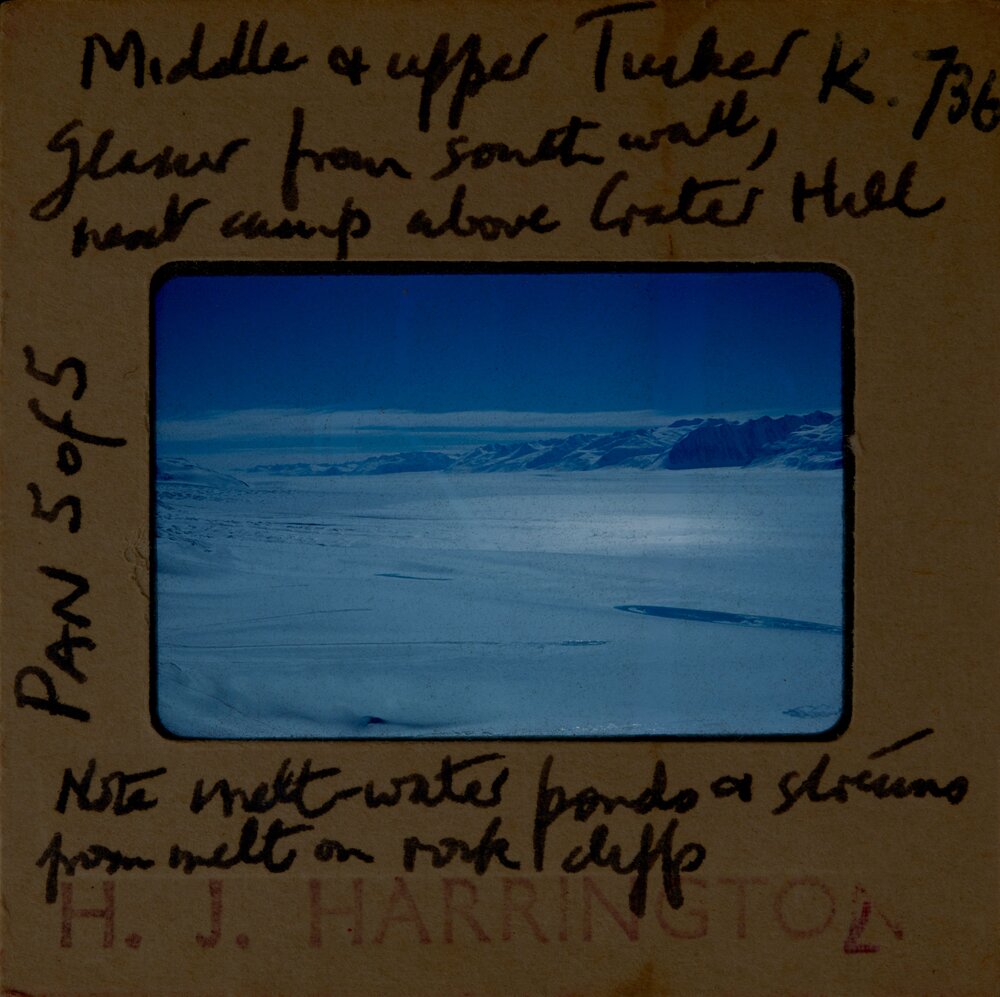 Middle & upper Tucker K. 736
Glacier from south wall,
next camp above Crater Hill
PAN 5 of 5
Note melt-water ponds & streams
from melt on rock cliffs
H. J. HARRINGTON